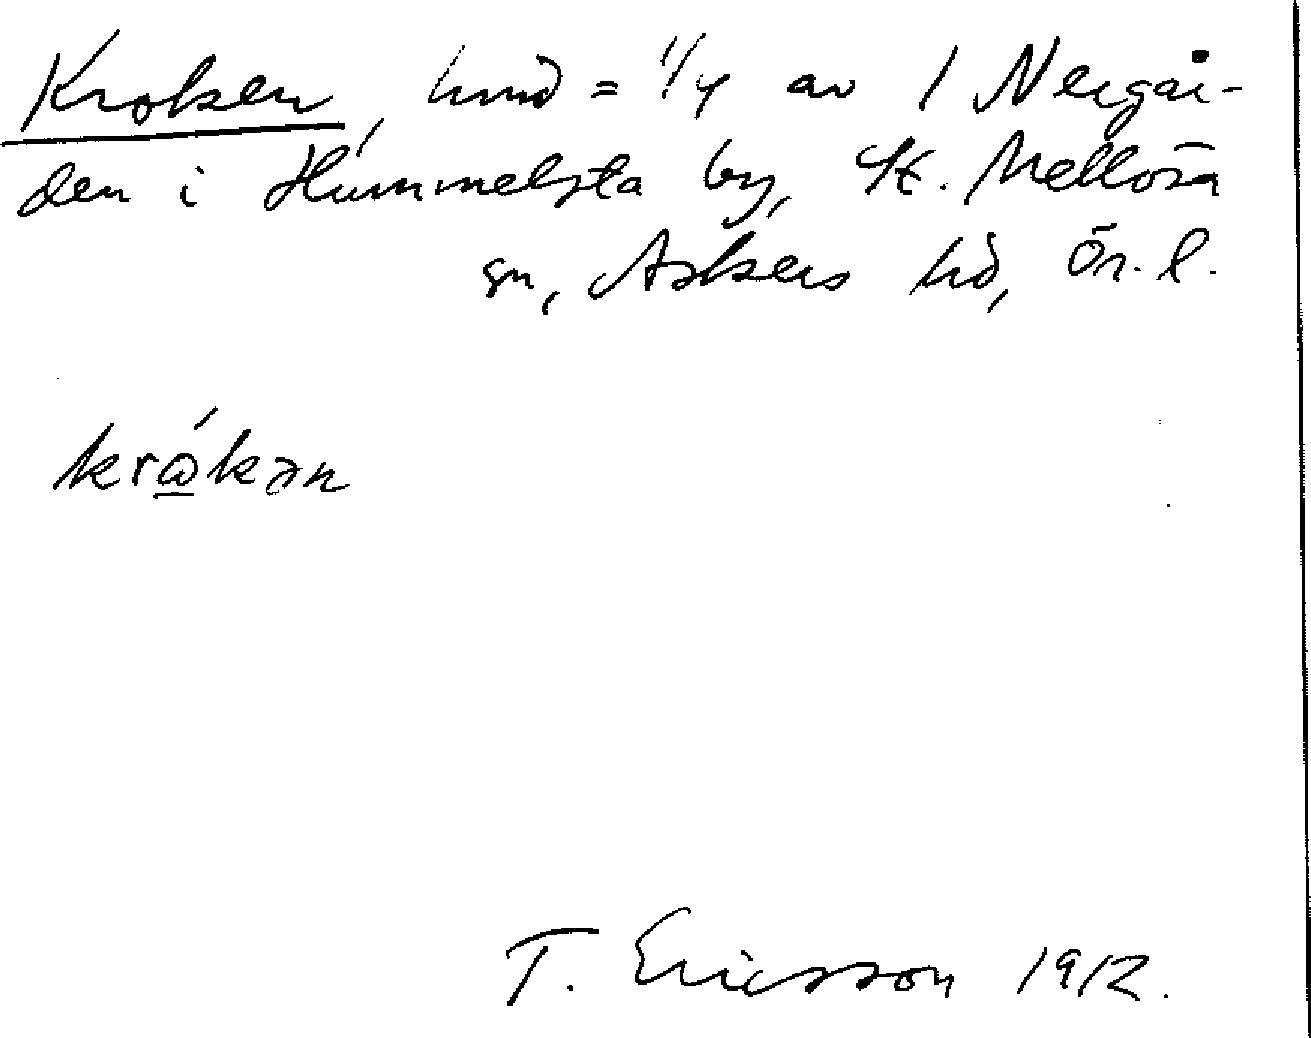 Kroken, hmd = 1/4 av 1 Nergår-
den i Hummelsta by, St. Mellösa
sn, Askers hd, Ör. l.
krώ̲kən
T. Ericsson 1912.